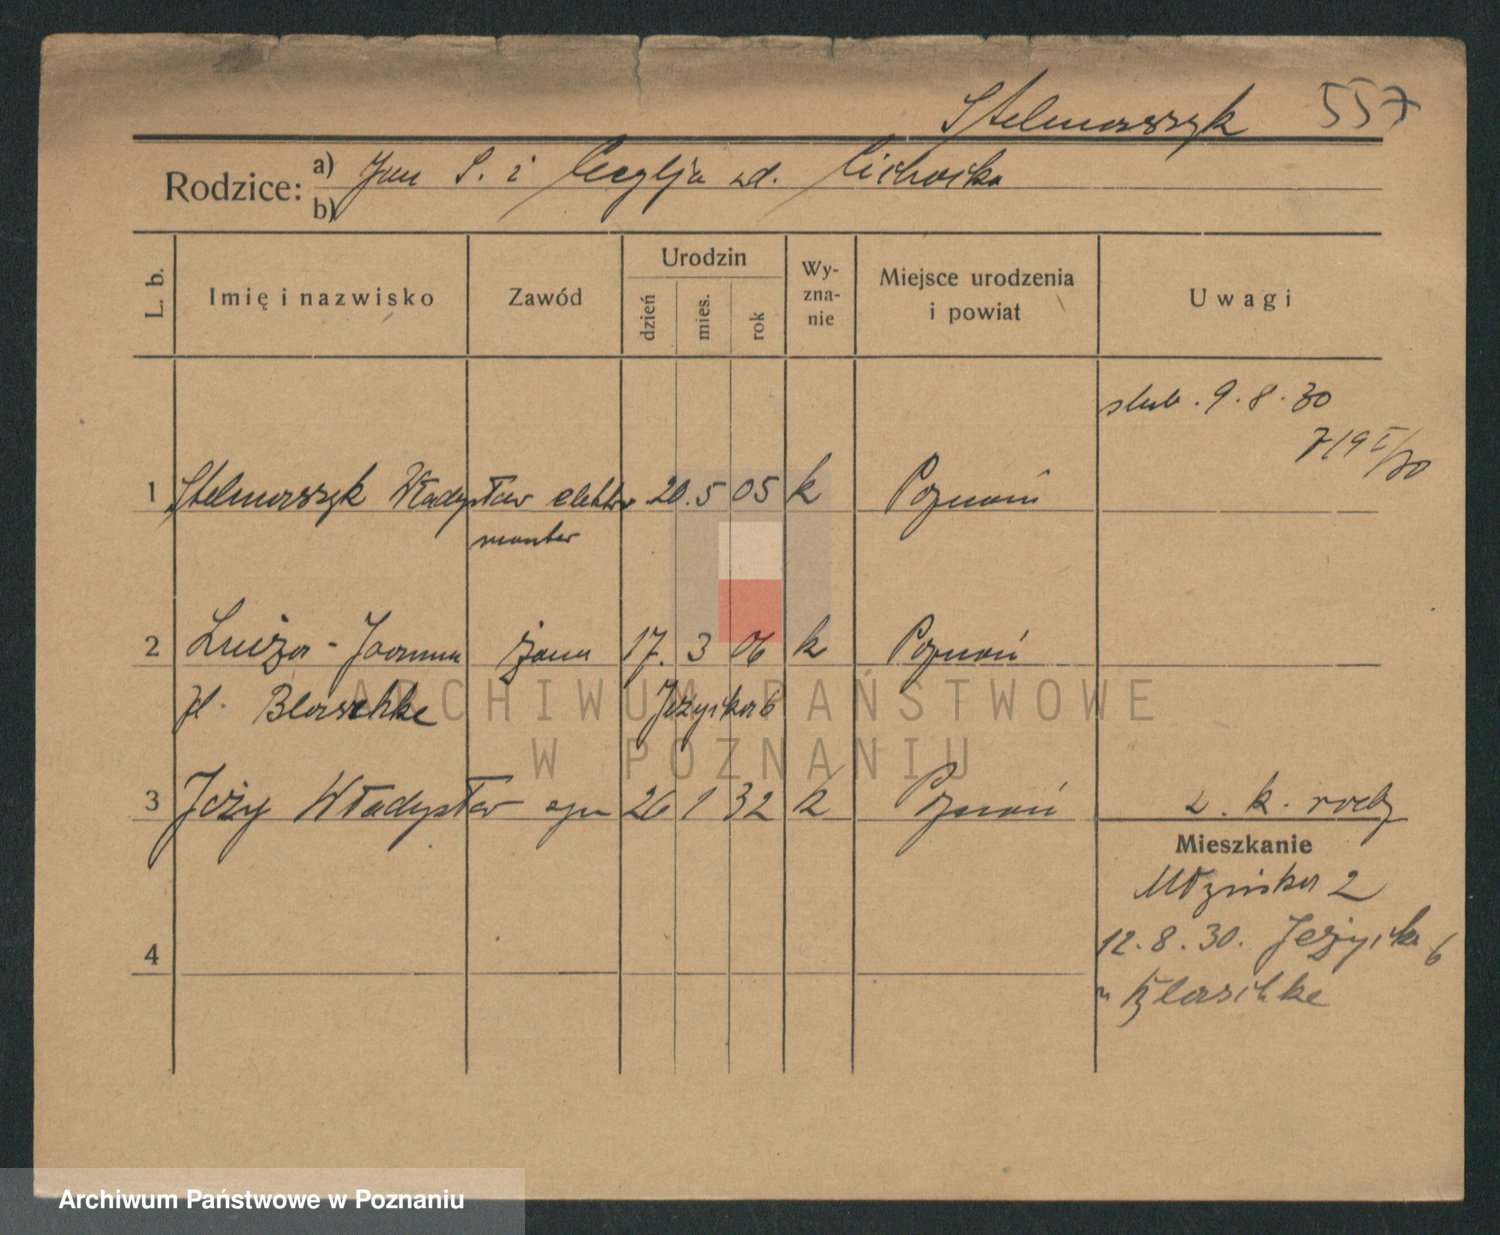 Stelmaszyk 557
Rodzice: a) Jan S. i Cecylja zd. Cichocka
b)
L. b. Imię i nazwisko Zawód Urodzin dzień mies. rok Wy-zna-nie Miejsce urodzenia i powiat Uwagi
ślub. 9.8.30
1 Stelmaszyk Władysław elektro 20. 5 05 k Poznań
monter
2 Luiza-Joanna żona 17. 3 06 k Poznań
Blaschke Jeżycka 6
3 Jeży Władysław syn 26 1 32 k Poznań
Mieszkanie
12.8.30. Jeżycka 6
4
Blaschke
ARCHIWUM PAŃSTWOWE
W POZNANIU
Archiwum Państwowe w Poznaniu